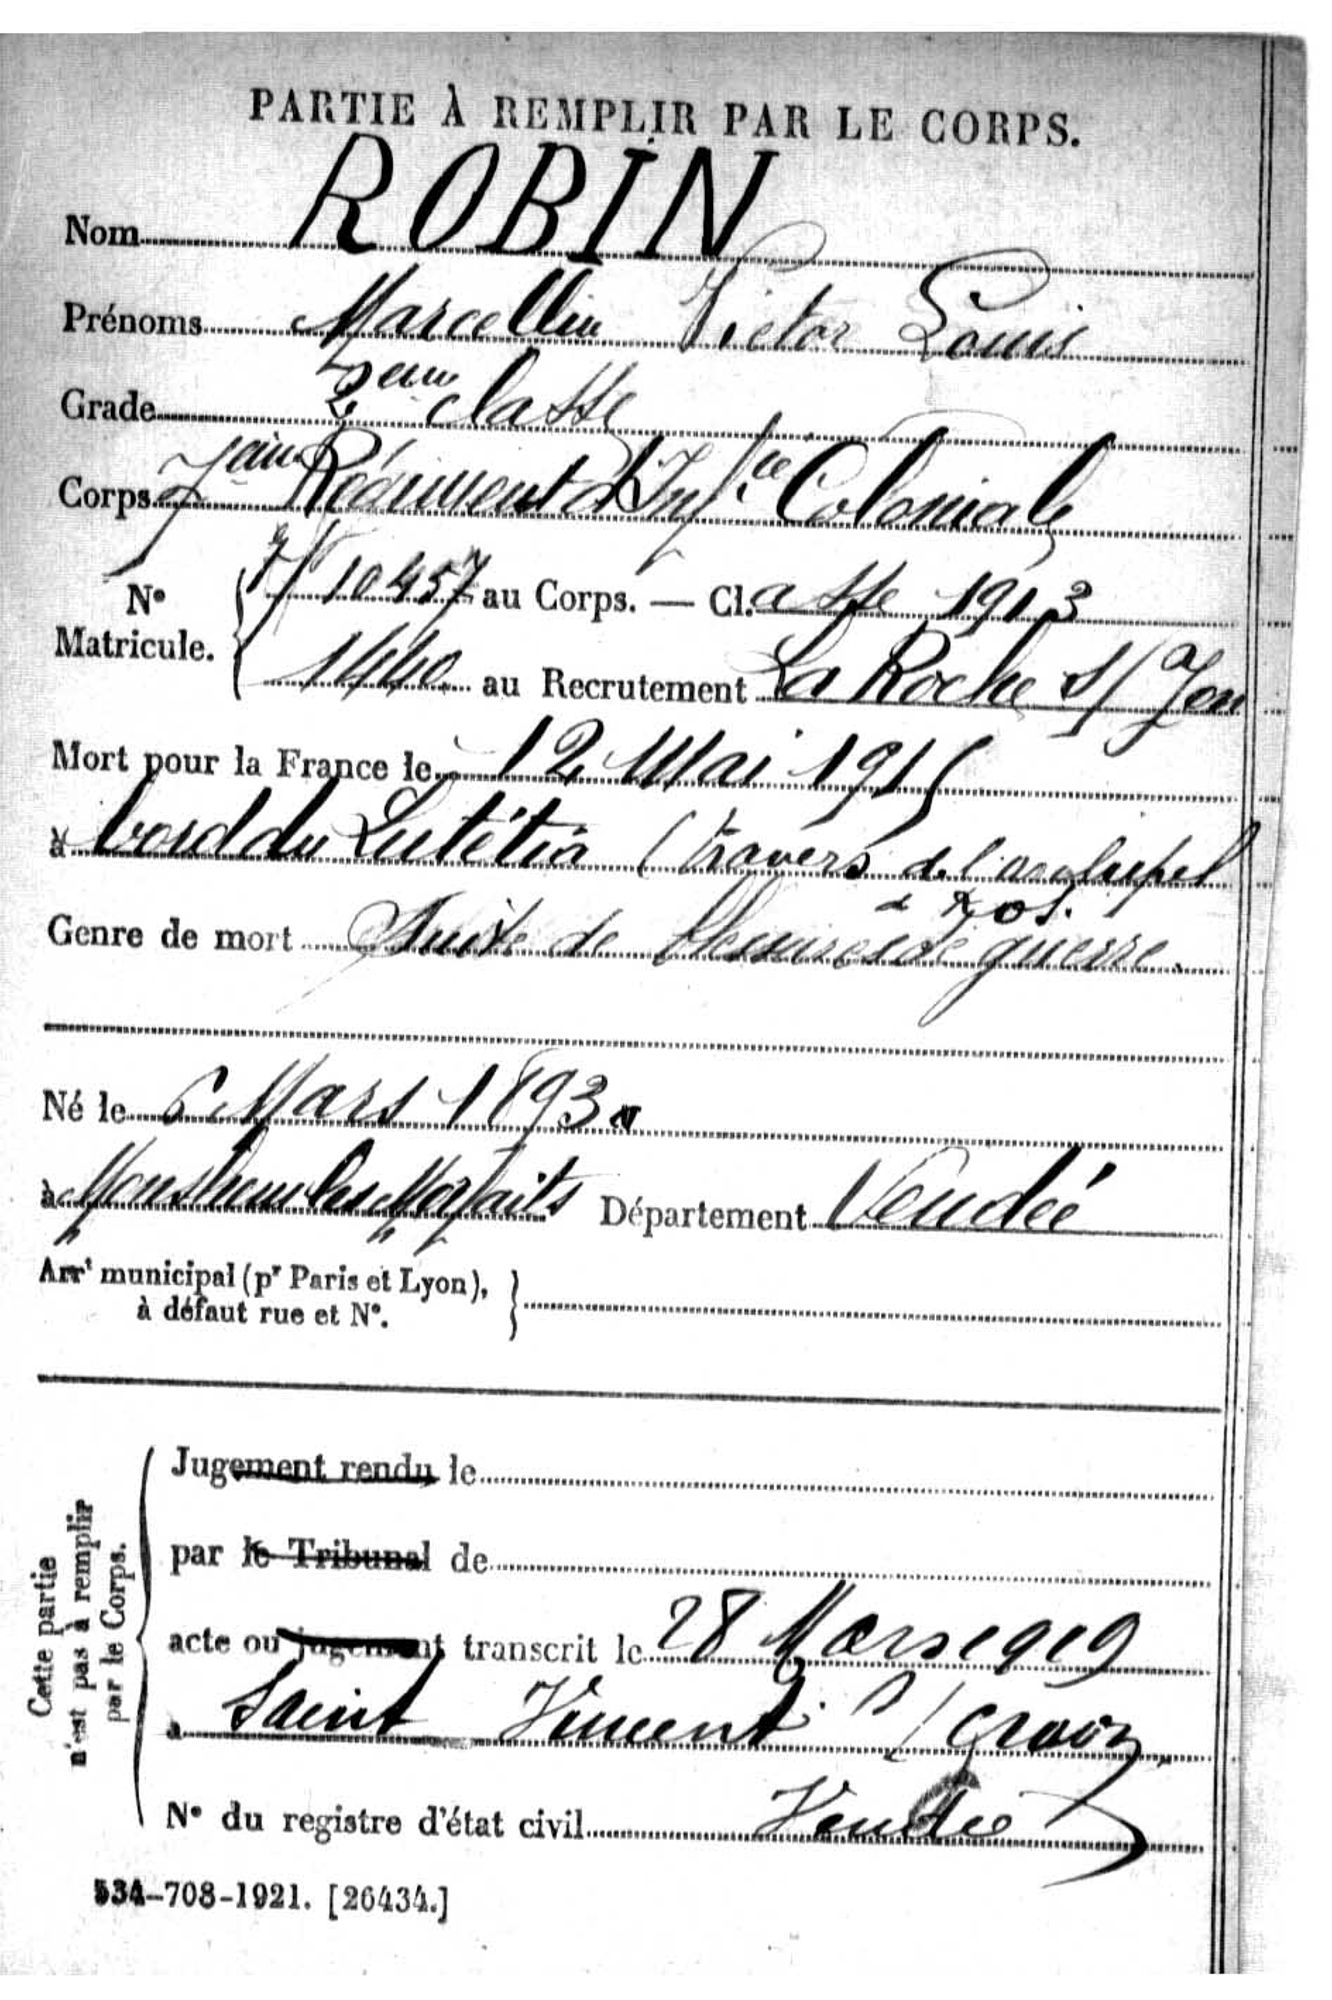 PARTIE À REMPLIR PAR LE CORPS.
Nom ROBIN
Prénoms Marcellin Victor Louis
Grade 2eme classe
Corps 7eme Régiment d'Inf.ie Coloniale
No Matricule. 10457 au Corps. — Cl.asse 1913
1440 au Recrutement La Roche s/ Yon
Mort pour la France le 12 Mai 1915
à bord du Lutétia (travers de l'archipel
de
Genre de mort Suite de blessures de guerre.
Né le 6 Mars 1893
à Moutiers les Mauxfaits Département Vendée
Arrt municipal (pr Paris et Lyon),
à défaut rue et No.
Cette partie
n'est pas à remplir
par le Corps.
Jugement rendu le
par le Tribunal de
acte ou jugement transcrit le 28 Mars 1919
à Saint Vincent s/ Graon
No du registre d'état civil Vendée
534-708-1921. [26434.]